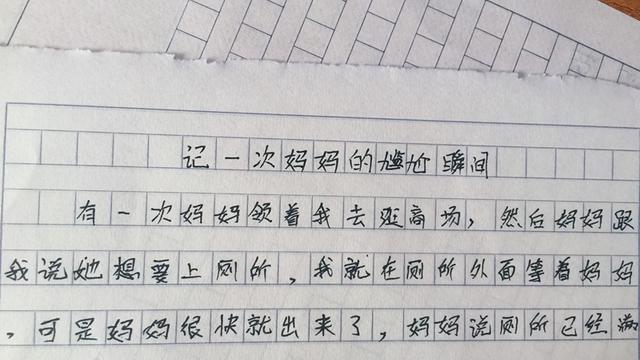 记一次妈妈的尴尬瞬间
有一次妈妈领着我去逛商场，然后妈妈跟
我说她想要上厕所，我就在厕所外面等着妈妈
，可是妈妈很快就出来了，妈妈说厕所已经满